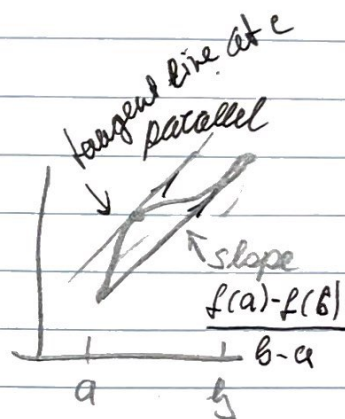 tangent line at c
parallel
slope
f(a)-f(b)
b-a
a
b